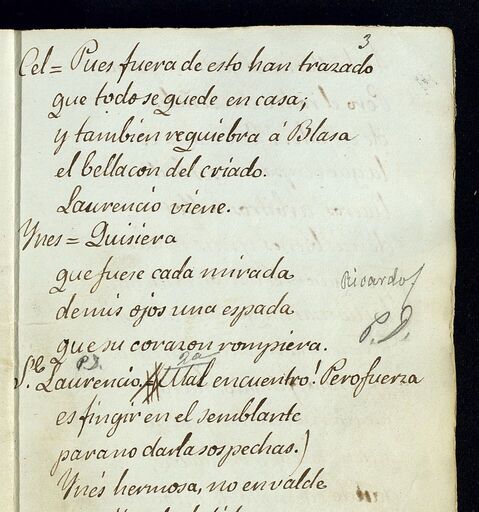 3
Cel = Pues fuera de esto han trazado
que todo se quede en casa;
y tambien requiebra á Blasa
el bellacon del criado.
Laurencio viene.
Ynes = Quisiera
que fuese cada mirada
Ricardo
de mis ojos una espada
P.D.
que su corazon rompiera.
P.D. 2a
Se. Laurencio. Mal encuentro! Pero fuerza
es fingir en el semblante
para no darla sospechas.)
Ynés hermosa, no en valde